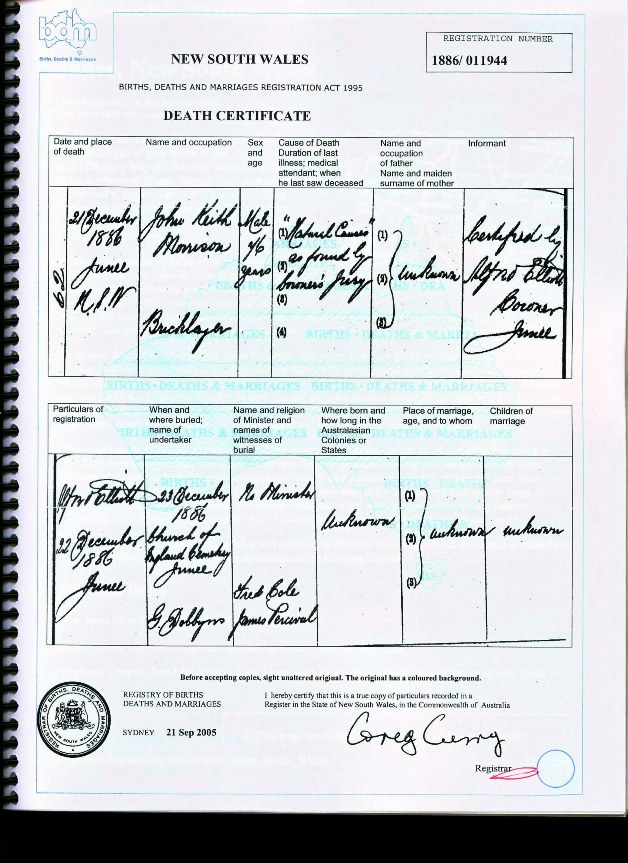 bdm
Births, Deaths & Marriages
REGISTRATION NUMBER
1886/ 011944
NEW SOUTH WALES
BIRTHS, DEATHS AND MARRIAGES REGISTRATION ACT 1995
DEATH CERTIFICATE
Date and place
of death
Name and occupation
Sex
and
age
Cause of Death
Duration of last
illness; medical
attendant; when
he last saw deceased
Name and
occupation
of father
Name and maiden
surname of mother
Informant
62
21 December
1886
Junee
N.S.W
John Keith
Morrison
Bricklayer
Male
46
years
"
(1) Natural Causes"
as found by
(2)
Coroner's Jury
(3)
(4)
(1)
(2) unknown
(3)
Certified by
Alfred Elliott
Coroner
Junee
Particulars of
registration
When and
where buried;
name of
undertaker
Name and religion
of Minister and
names of
witnesses of
burial
Where born and
how long in the
Australasian
Colonies or
States
Place of marriage,
age, and to whom
Children of
marriage
Elliott
22 December
1886
Junee
23 December
1886
Church of
England Cemetery
Junee
G. Dobbyns
No Minister
Fred Cole
James Percival
Unknown
(1)
(2) unknown
(3)
unknown
Before accepting copies, sight unaltered original. The original has a coloured background.
REGISTRY OF BIRTHS
DEATHS AND MARRIAGES
SYDNEY 21 Sep 2005
I hereby certify that this is a true copy of particulars recorded in a
Register in the State of New South Wales, in the Commonwealth of Australia
Greg Curry
Registrar
REGISTRAR OF BIRTHS, DEATHS AND MARRIAGES
NEW SOUTH WALES